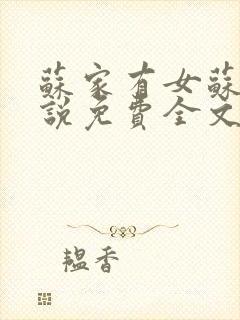 蘇家有女蘇
說免費全文
韞香